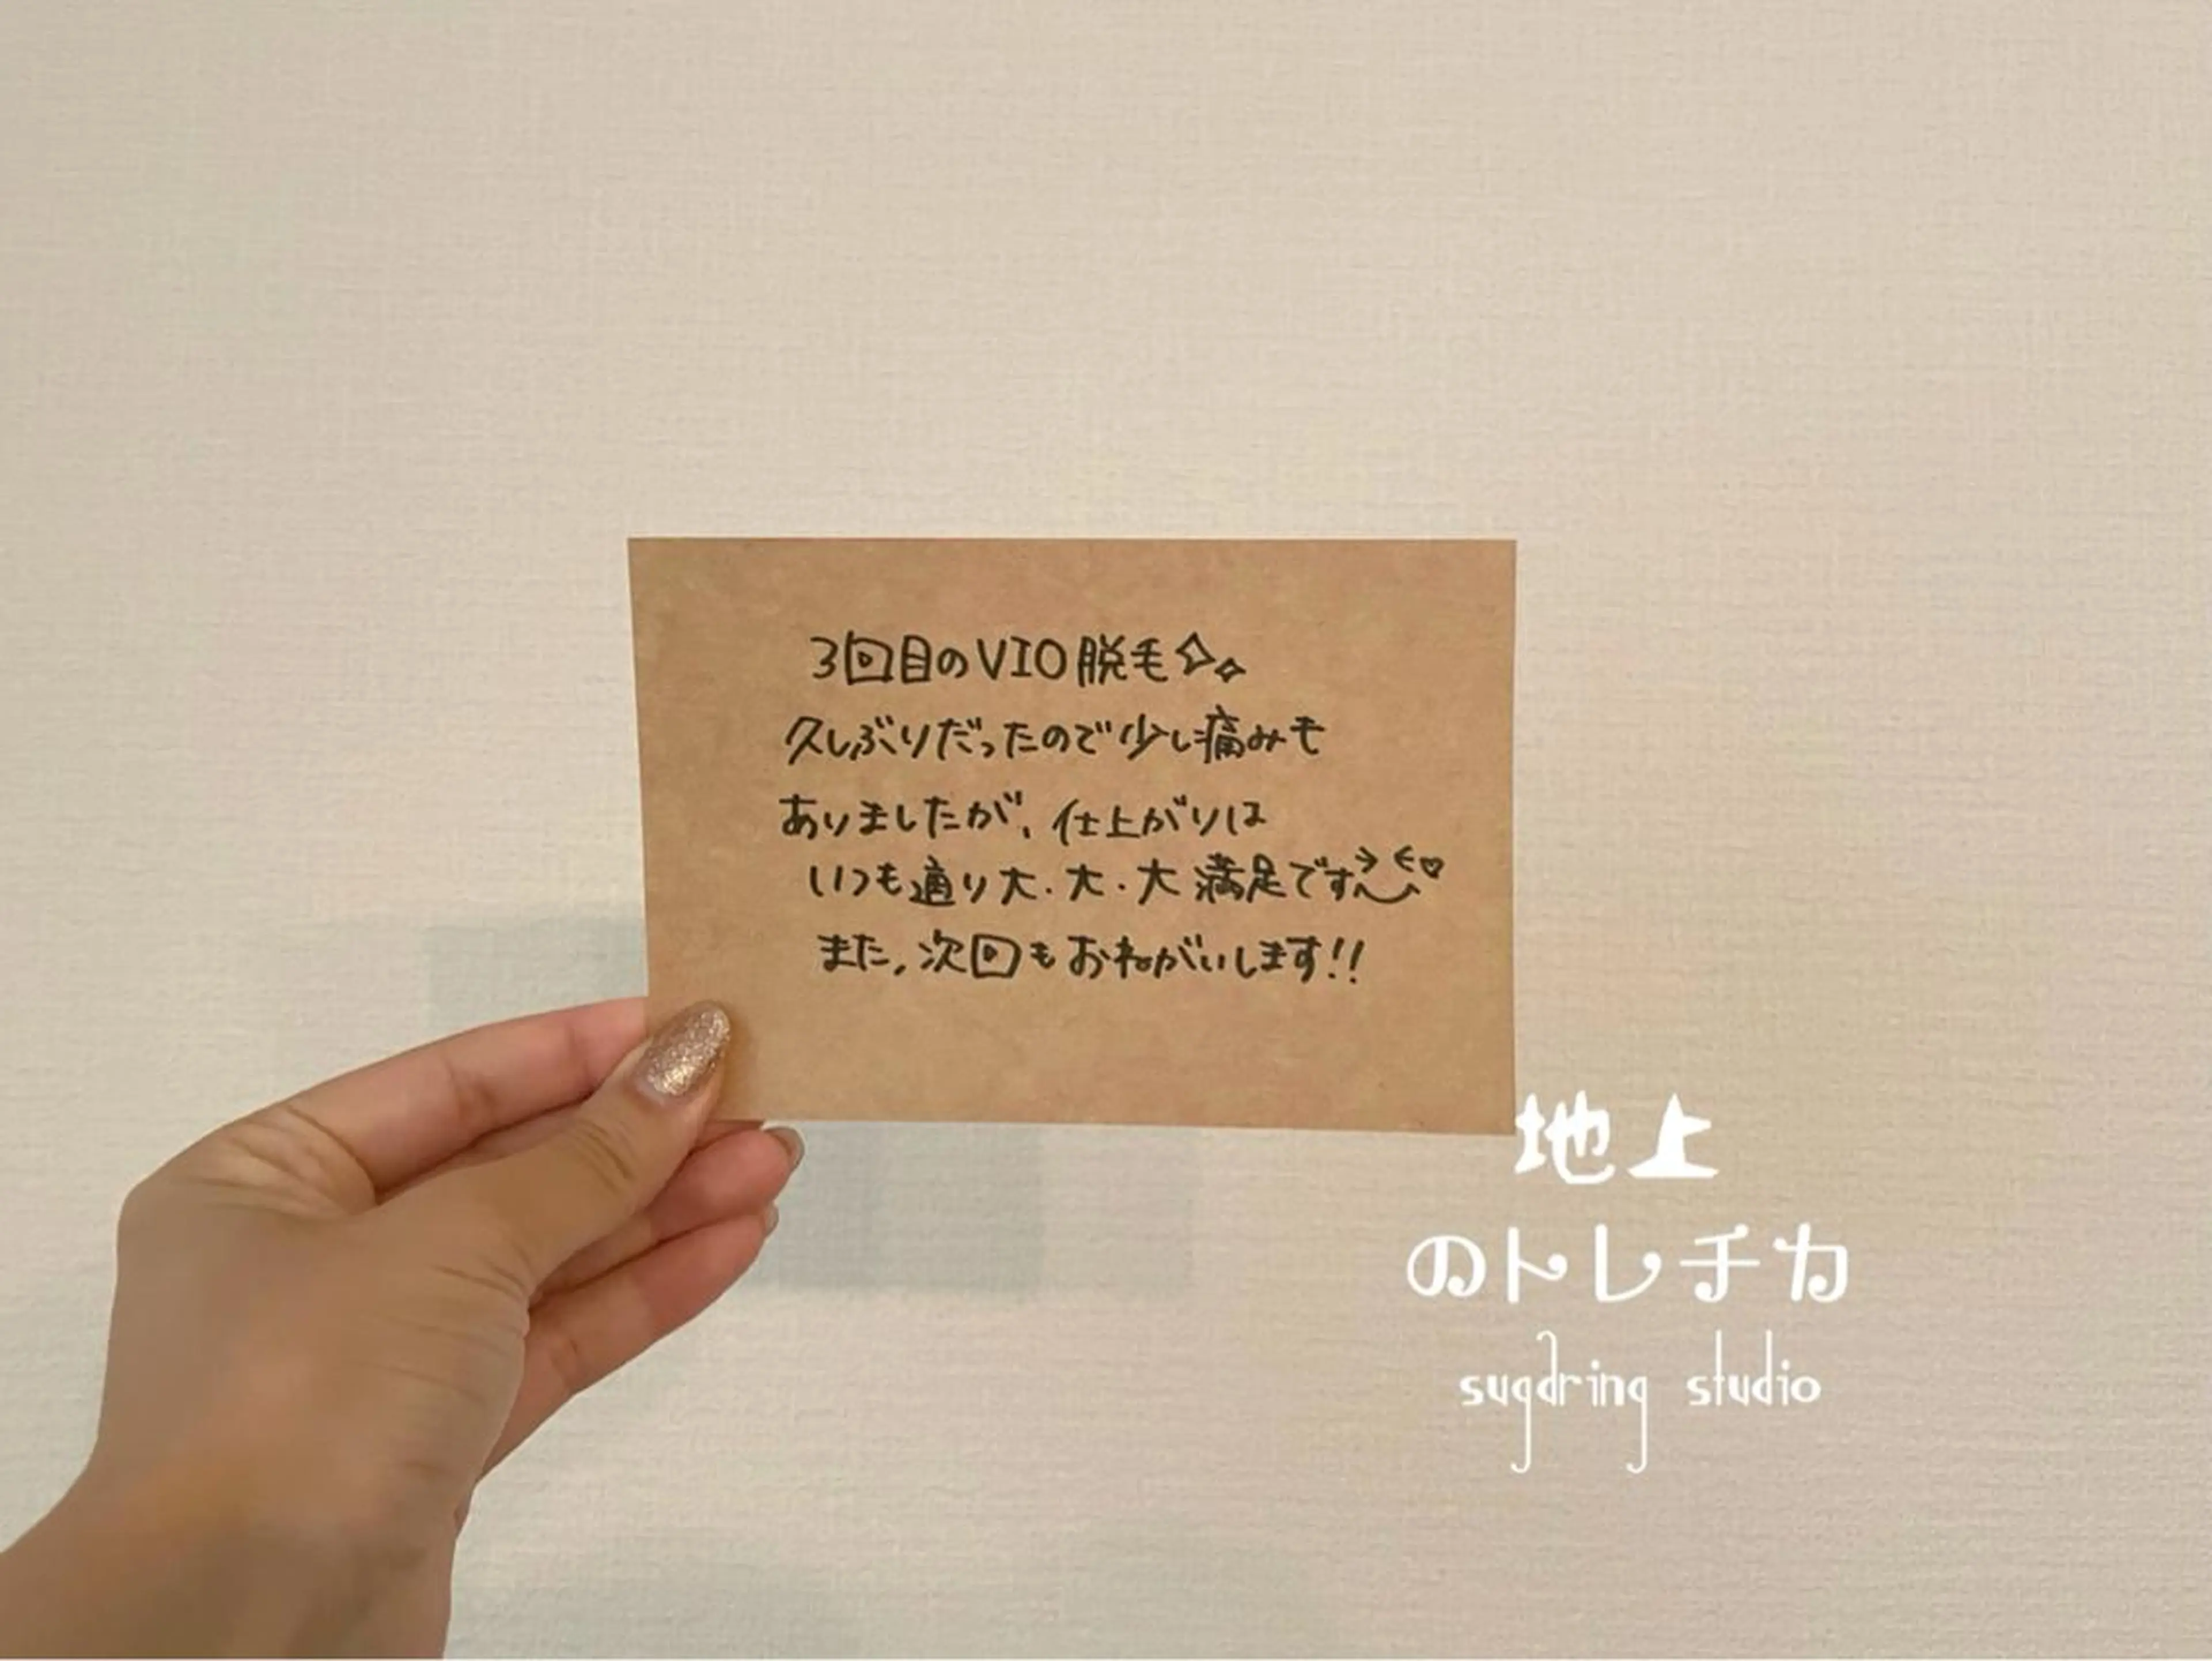 3回目のVIO脱毛✧✧
久しぶりだったので少し痛みも
ありましたが、仕上がりは
いつも通り大・大・大満足です
また、次回もおねがいします!!
地上
のトレチカ
sugaring studio